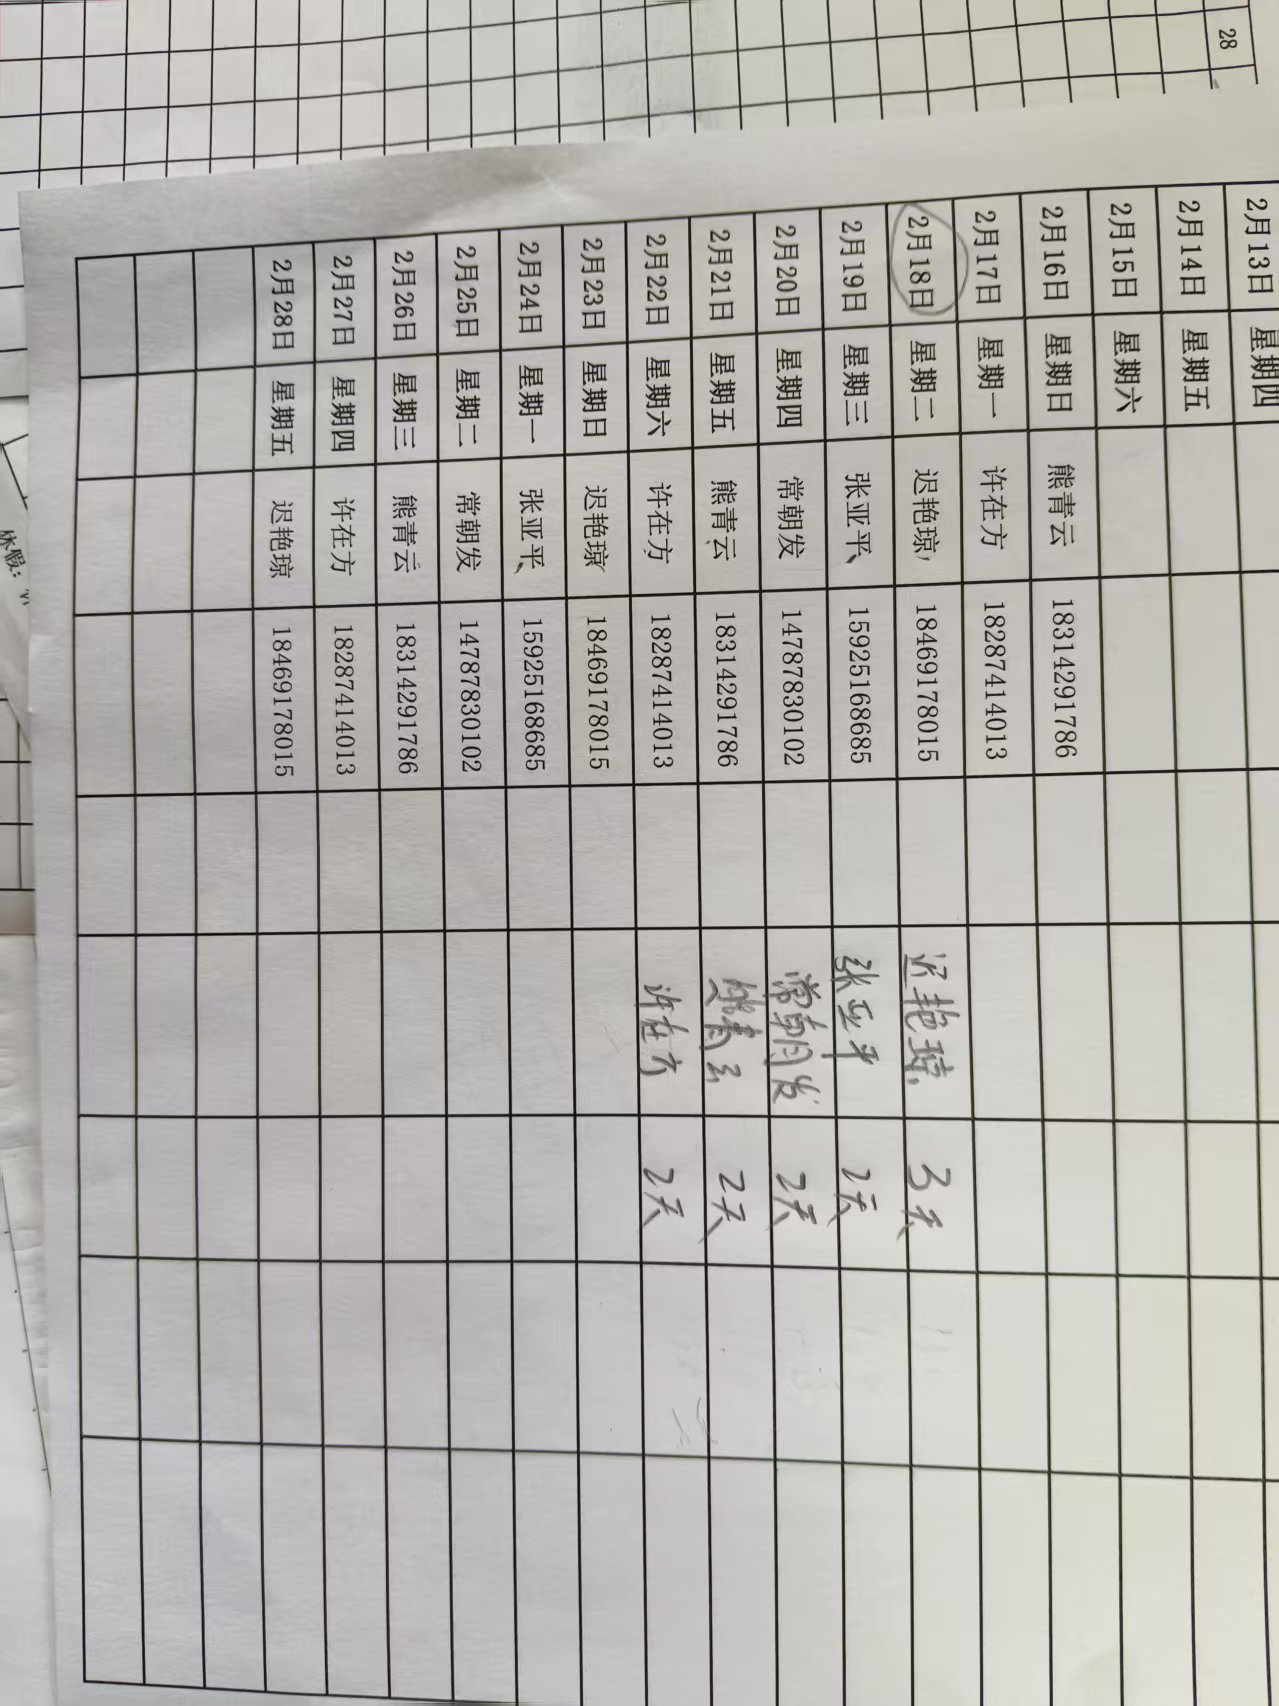 28
2月13日 星期四
2月14日 星期五
2月15日 星期六
2月16日 星期日 熊青云 18314291786
2月17日 星期一 许在方 18287414013
2月18日 星期二 迟艳琼 18469178015 迟艳琼 3天
2月19日 星期三 张亚平 15925168685 张亚平 2天
2月20日 星期四 常朝发 14787830102 常朝发 2天
2月21日 星期五 熊青云 18314291786 熊青云 2天
2月22日 星期六 许在方 18287414013 许在方 2天
2月23日 星期日 迟艳琼 18469178015
2月24日 星期一 张亚平 15925168685
2月25日 星期二 常朝发 14787830102
2月26日 星期三 熊青云 18314291786
2月27日 星期四 许在方 18287414013
2月28日 星期五 迟艳琼 18469178015
休假：